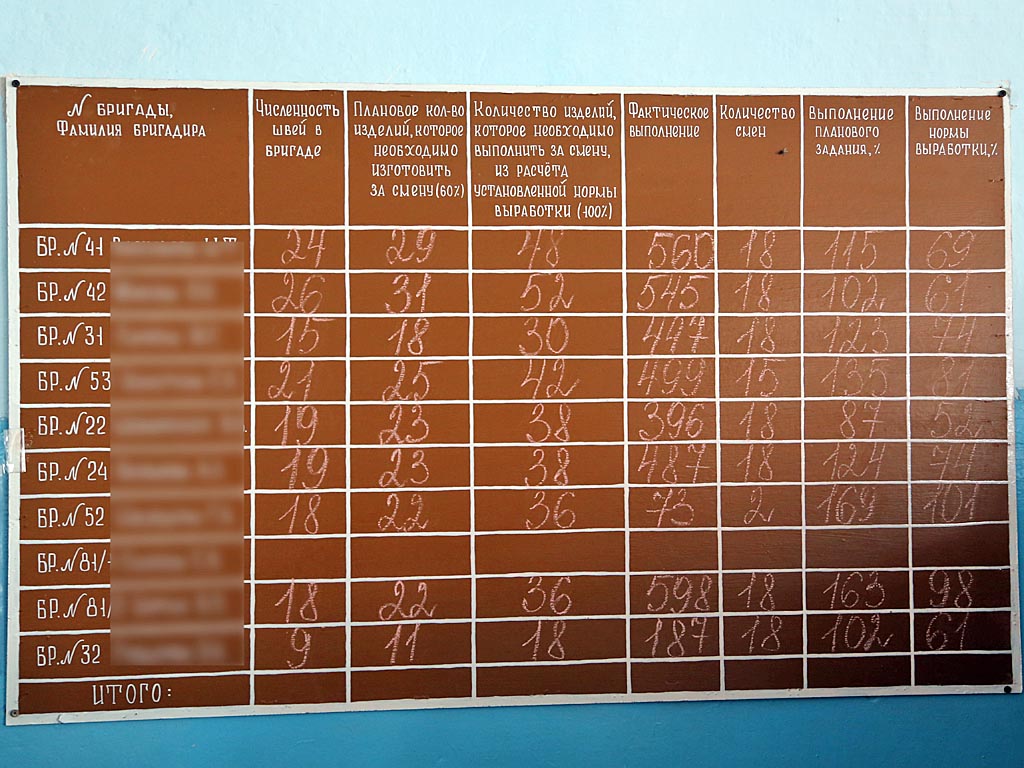 N БРИГАДЫ,
ФАМИЛИЯ БРИГАДИРА
ЧИСЛЕННОСТЬ
ШВЕЙ В
БРИГАДЕ
ПЛАНОВОЕ КОЛ-ВО
ИЗДЕЛИЙ, КОТОРОЕ
НЕОБХОДИМО
ИЗГОТОВИТЬ
ЗА СМЕНУ (60%)
КОЛИЧЕСТВО ИЗДЕЛИЙ,
КОТОРОЕ НЕОБХОДИМО
ВЫПОЛНИТЬ ЗА СМЕНУ,
ИЗ РАСЧЁТА
УСТАНОВЛЕННОЙ НОРМЫ
ВЫРАБОТКИ (100%)
ФАКТИЧЕСКОЕ
ВЫПОЛНЕНИЕ
КОЛИЧЕСТВО
СМЕН
ВЫПОЛНЕНИЕ
ПЛАНОВОГО
ЗАДАНИЯ, %
ВЫПОЛНЕНИЕ
НОРМЫ
ВЫРАБОТКИ, %
БР. N 41 24 29 48 560 18 115 69
БР. N 42 26 31 52 545 18 102 61
БР. N 31 15 18 30 447 18 123 74
БР. N 53 21 25 42 499 15 135 81
БР. N 22 19 23 38 396 18 87 52
БР. N 24 19 23 38 487 18 124 74
БР. N 52 18 22 36 73 2 169 101
БР. N 81/
БР. N 81/ 18 22 36 598 18 163 98
БР. N 32 9 11 18 187 18 102 61
ИТОГО: